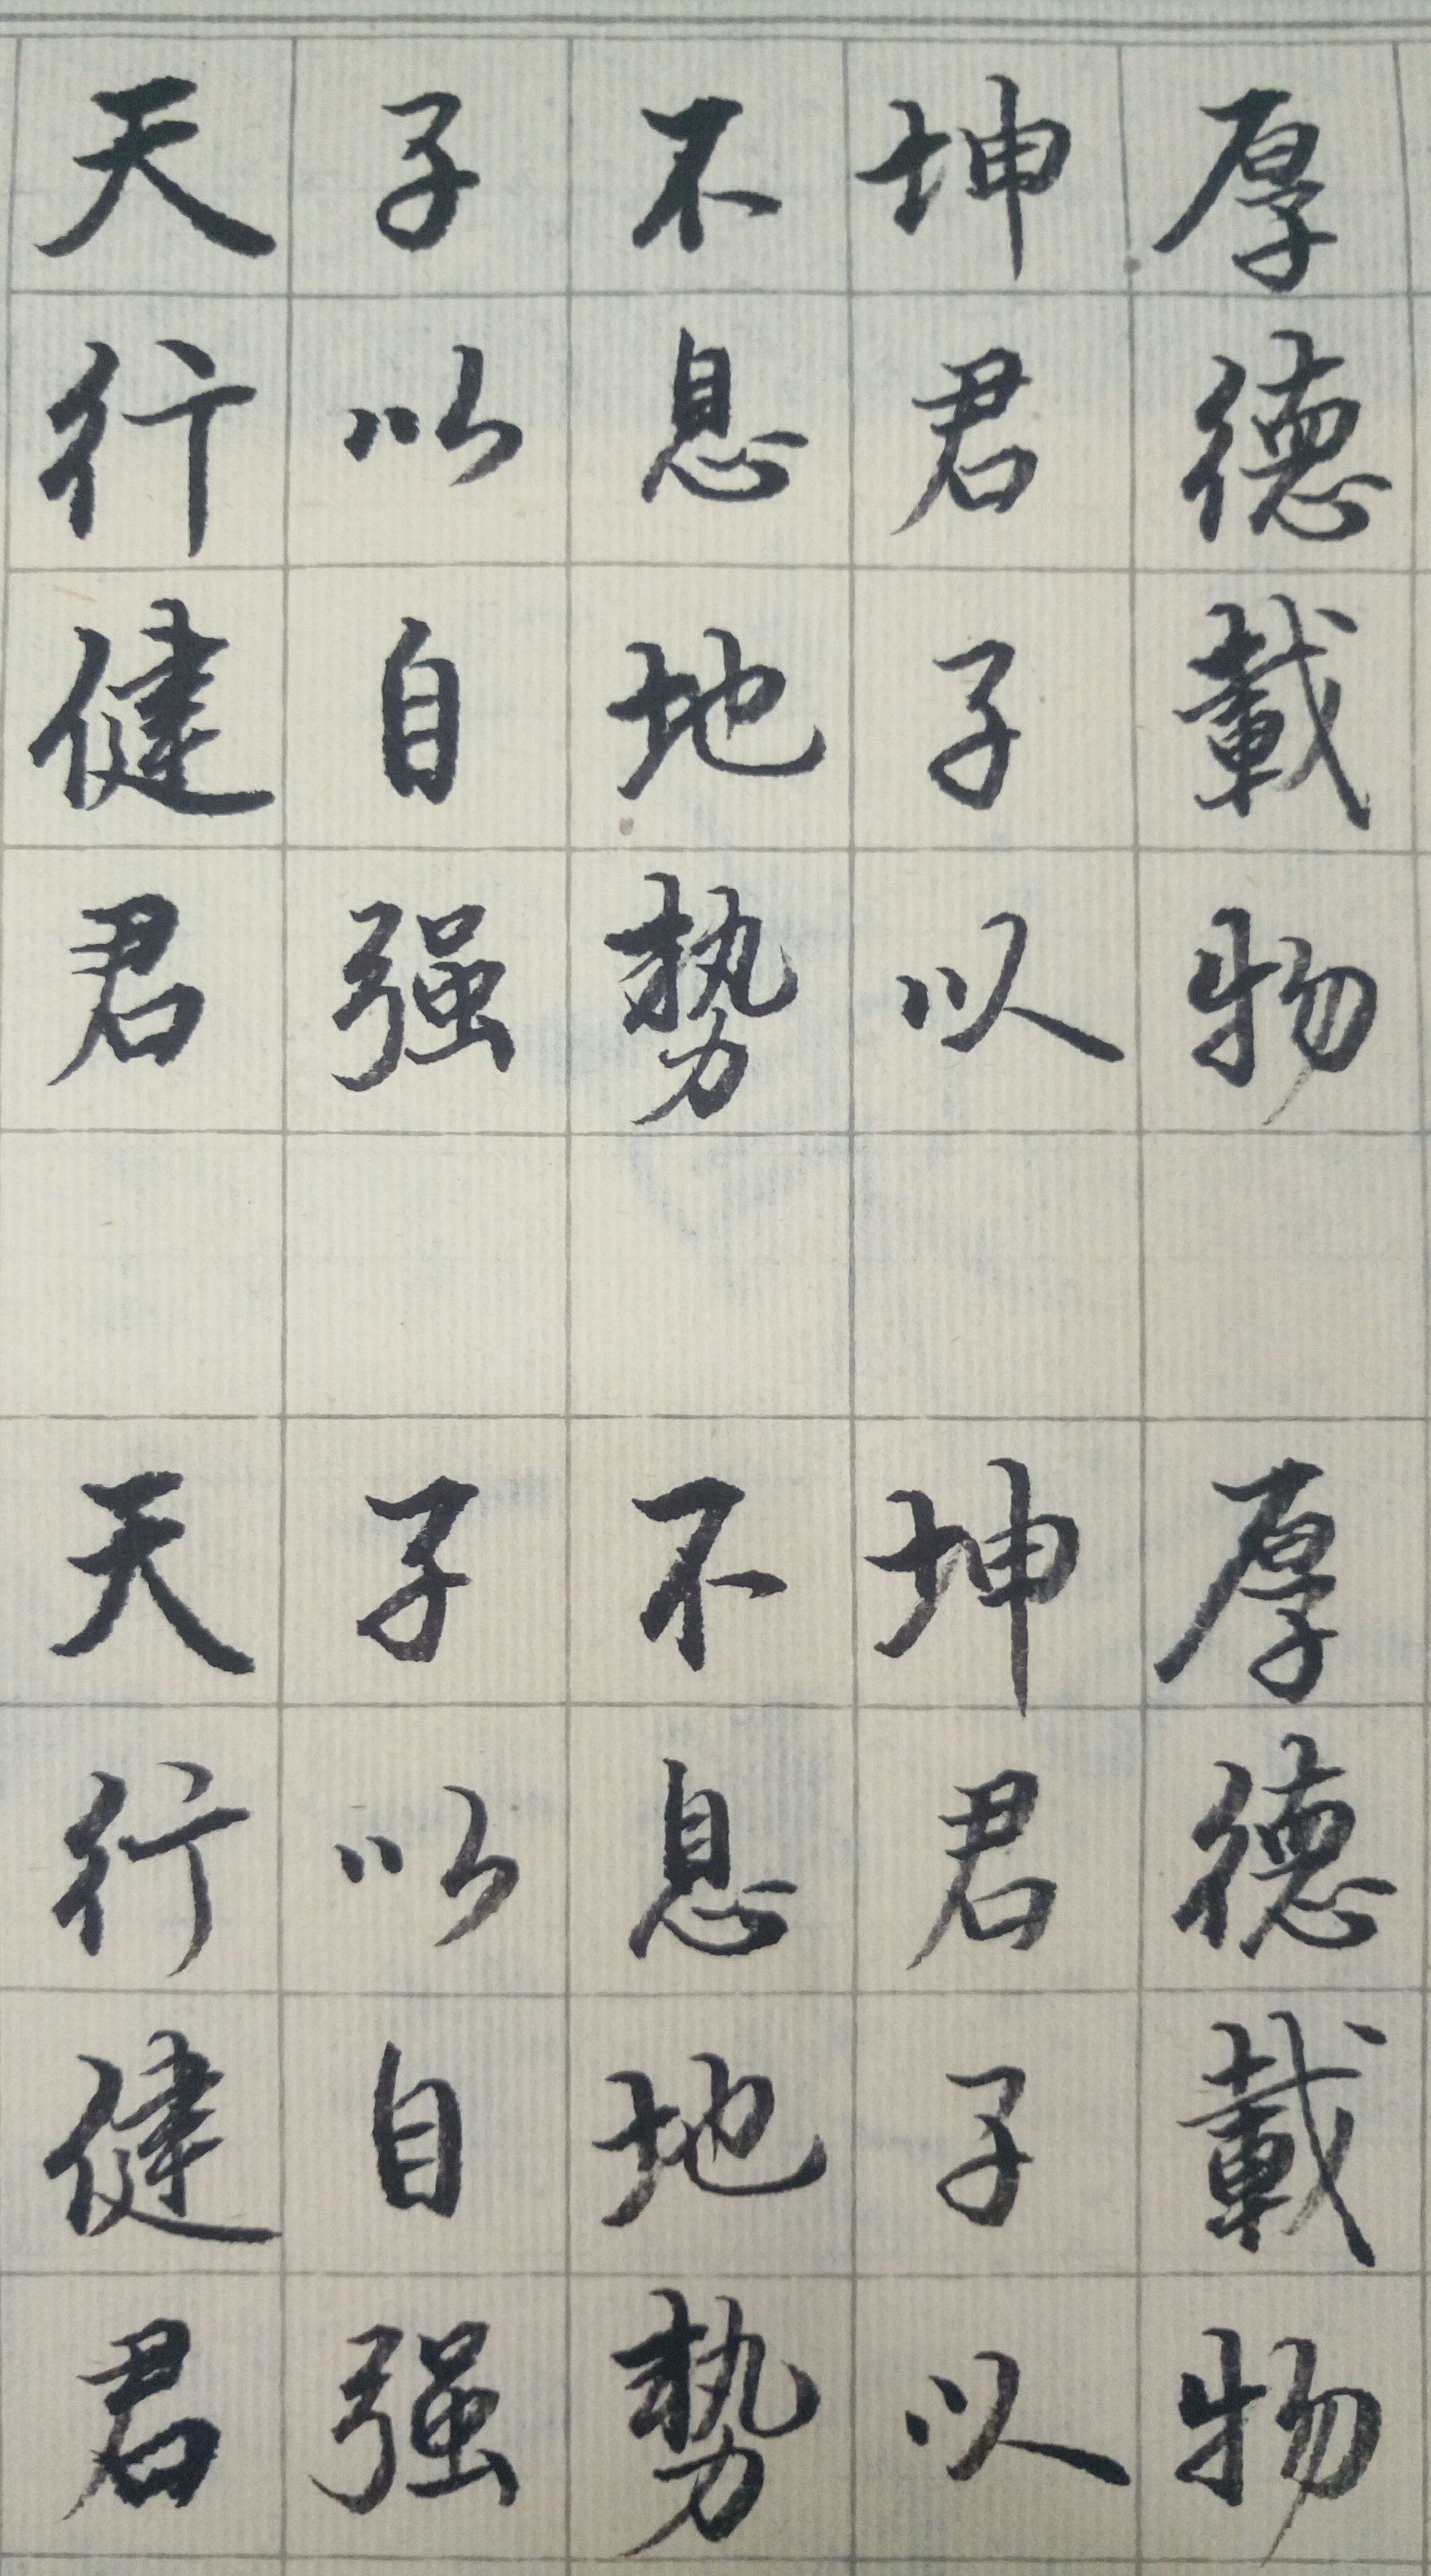 天行健君
子以自强
不息地势
坤君子以
厚德载物
天行健君
子以自强
不息地势
坤君子以
厚德载物